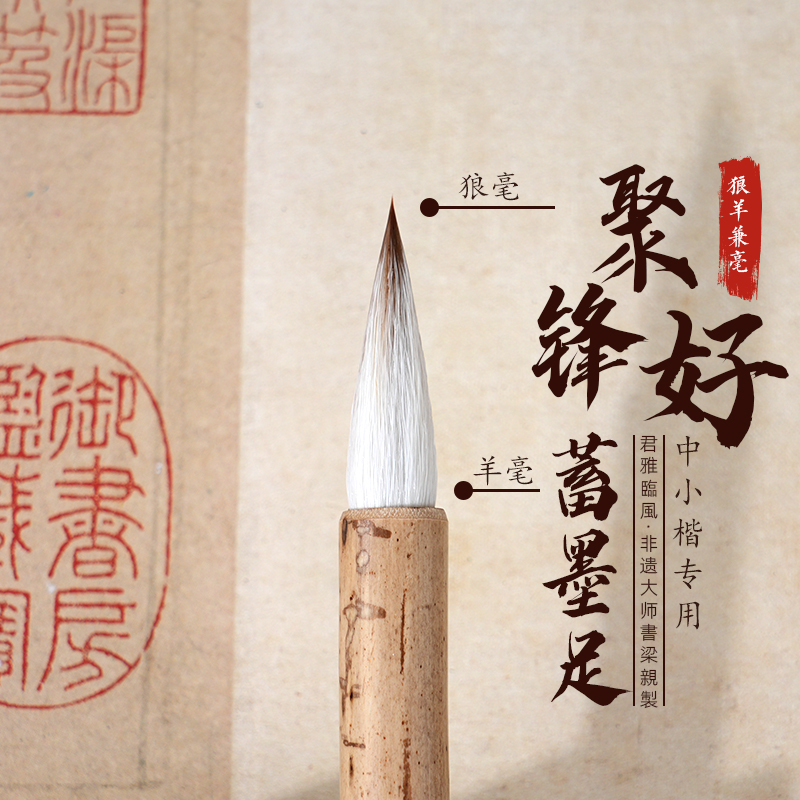 狼羊兼毫
聚锋好
蓄墨足
中小楷专用
君雅臨風·非遗大师書梁親製
狼毫
羊毫
渠
笈
御書房
鑑藏寶